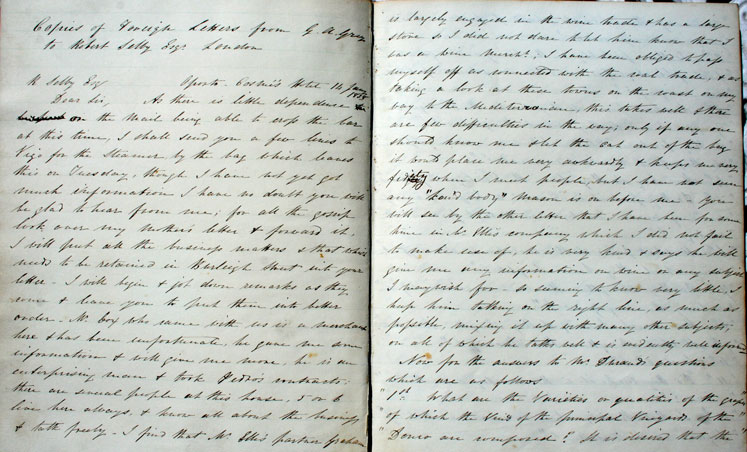 Copies of Foreign Letters from G A Gray
to Robert Selby Esqr London
R Selby Esq Oporto. Hotel 14
Dear Sir, As there is little dependence
on the Mail being able to cross the bar
at this time, I shall send you a few lines to
Vigo for the Steamer by the bag which leaves
this on Tuesday, though I have not yet got
much information I have no doubt you will
be glad to hear from me, for all the gossip
look over my Mother's letter & forward it
I will put all the business matters & that which
needs to be retained in Burleigh Street into your
letter - I will begin & jot down remarks as they
come & leave you to put them into better
order. Mr Cox who came with us is a merchant
here & has been unfortunate, he gave me some
information & will give me more, he is an
enterprising man & took Pedro's contracts.
there are several people at this house, 5 or 6
live here always, & know all about the business
& talk freely - I find that Mr Ellis's partner Graham
is largely engaged in the wine trade & has a large
store so I did not dare to let him know that I
was a Wine Mercht, I have been obliged to pass
myself off as connected with the coal trade, & as
taking a look at these towns on the coast on my
way to the Mediterranean this takes well & there
are few difficulties in the way, only if any one
should know me & let the cat out of the bag
it would place me very awkwardly & keeps me very
where I meet people, but I have not seen
any Mason is on before me - you
will see by the other letter that I have been for some
time in Mr Ellis company which I did not fail
to make use of, he is very kind & says he will
give me any information on wine or any subject
I may wish for so seeming to know very little I
keep him talking on the right line, as much as
possible, mixing it up with many other subjects,
on all of which he talks well & is evidently well informed
Now for the answers to Mr Durand's questions
which are as follows
"1st What are the Varieties or qualities of the grapes
"of which the Vines of the principal Vineyards of the
"Douro are composed? It is desired that the